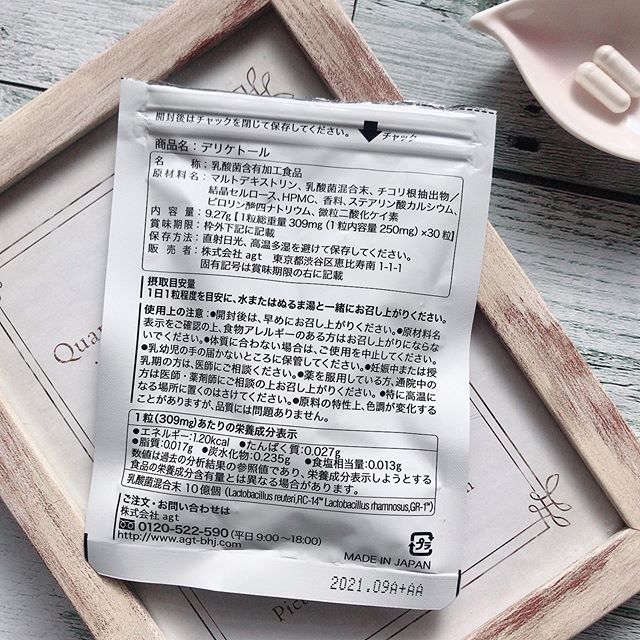 開封後はチャックを閉じて保存してください。
チャック
商品名：デリケトール
名　　称：乳酸菌含有加工食品
原材料名：マルトデキストリン、乳酸菌混合末、チコリ根抽出物／
結晶セルロース、HPMC、香料、ステアリン酸カルシウム、
ピロリン酸四ナトリウム、微粒二酸化ケイ素
内 容 量：9.27g【1粒総重量309mg（1粒内容量250mg）×30粒】
賞味期限：枠外下記に記載
保存方法：直射日光、高温多湿を避けて保存してください。
販 売 者：株式会社 agt　東京都渋谷区恵比寿南1-1-1
固有記号は賞味期限の右に記載
摂取目安量
1日1粒程度を目安に、水またはぬるま湯と一緒にお召し上がりください。
使用上の注意：●開封後は、早めにお召し上がりください。●原材料名
表示をご確認の上、食物アレルギーのある方はお召し上がりにならな
いでください。●体質に合わない場合は、ご使用を中止してください。
●乳幼児の手の届かないところに保管してください。●妊娠中または授
乳期の方は、医師にご相談ください。●薬を服用している方、通院中の
方は医師・薬剤師にご相談の上お召し上がりください。●特に高温に
なる場所に置くのはさけてください。●原料の特性上、色調が変化する
ことがありますが、品質には問題ありません。
1粒（309mg）あたりの栄養成分表示
●エネルギー：1.20kcal　●たんぱく質：0.027g
●脂質：0.017g　●炭水化物：0.235g　●食塩相当量：0.013g
数値は過去の分析結果の参照値であり、栄養成分表示しようとする
食品の栄養成分含有量とは異なる場合があります。
乳酸菌混合末 10億個（Lactobacillus reuteri,RC-14™ Lactobacillus rhamnosus,GR-1™）
ご注文・お問い合わせは
株式会社 agt
0120-522-590（平日 9:00～18:00）
http://www.agt-bhj.com
プラ
MADE IN JAPAN
2021.09A+AA
Qua
Pict